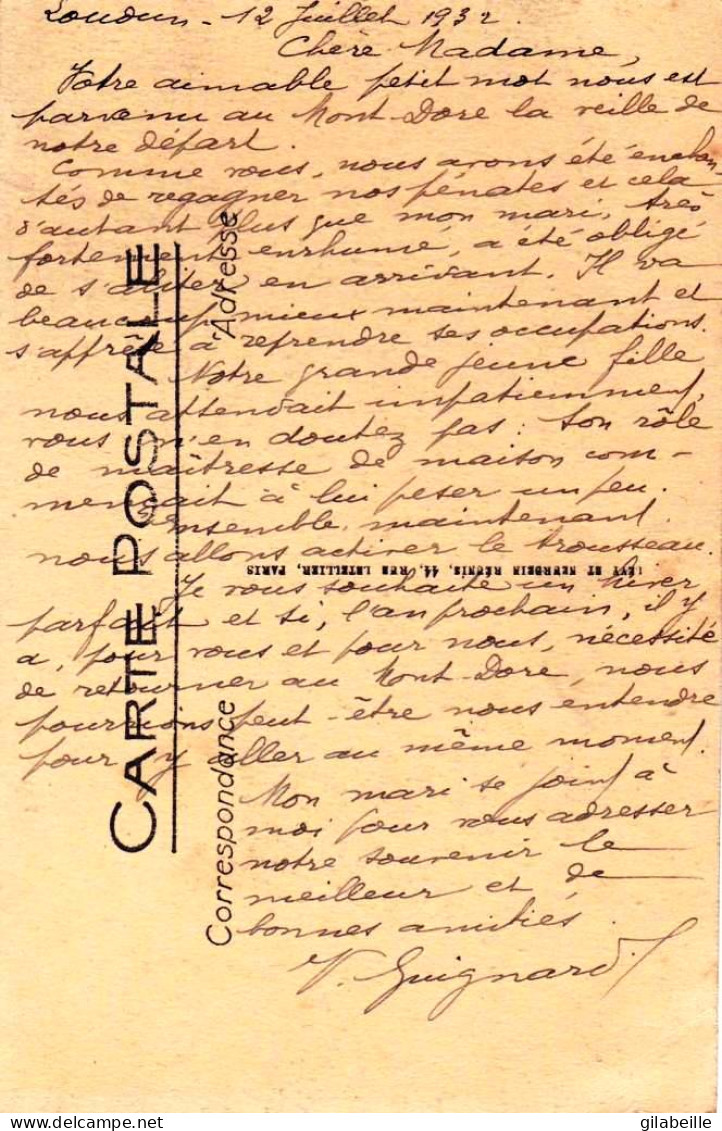 Loudun - 12 Juillet 1932.
Chère Madame,
Votre aimable petit mot nous est
parvenu au Mont-Dore la veille de
notre départ.
Comme vous, nous avons été enchan-
tés de regagner nos pénates et cela
d'autant plus que mon mari, très
fortement enrhumé, a été obligé
de s'aliter en arrivant. Il va
beaucoup mieux maintenant et
s'apprête à reprendre ses occupations.
Notre grande jeune fille
nous attendait impatiemment,
vous n'en doutez pas : son rôle
de maîtresse de maison com-
mençait à lui peser un peu.
Ensemble, maintenant
nous allons activer le trousseau.
Je vous souhaite un hiver
parfait et si, l'an prochain, il y
a, pour vous et pour nous, nécessité
de retourner au Mont-Dore, nous
pourrions peut-être nous entendre
pour y aller au même moment.
Mon mari se joint à
moi pour vous adresser
notre souvenir le
meilleur et de
bonnes amitiés.
V. Guignard
CARTE POSTALE
Correspondance
Adresse
LÉVY ET NEURDEIN RÉUNIS, 44, RUE LETELLIER, PARIS
gilabeille